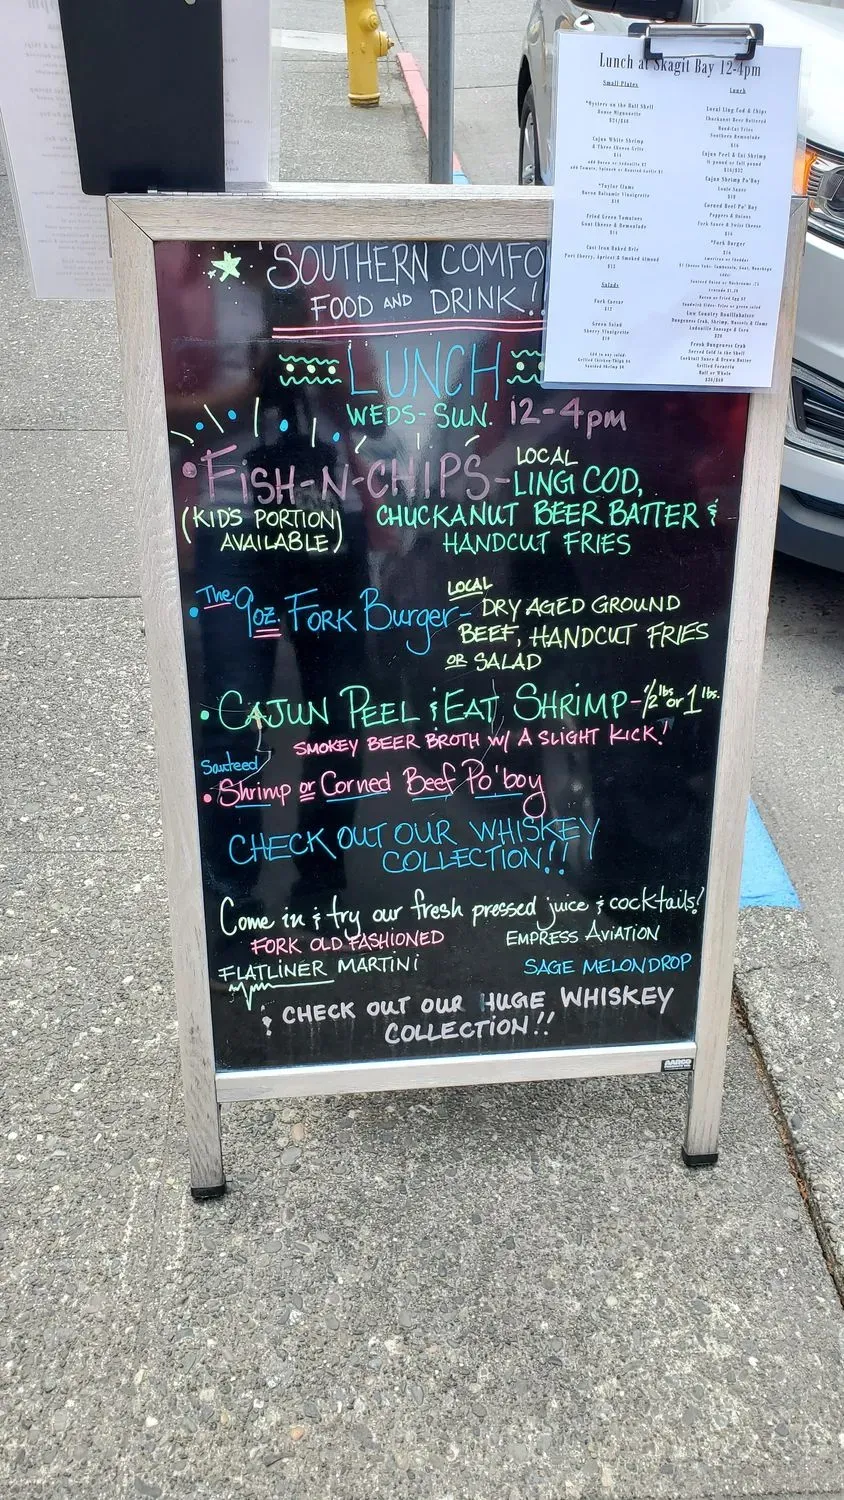 Lunch at Skagit Bay 12-4pm
Small Plates
*Oysters on the Half Shell
$24/$48
Cajun White Shrimp
& Three Cheese Grits
$14
*Taylor Clams
Bacon Balsamic Vinaigrette
Fried Green Tomatoes
Goat Cheese & Remoulade
Cast Iron Baked Brie
Port Cherry, Apricot & Smoked Almond
Salads
Fork Caesar
$12
Green Salad
Sherry Vinaigrette
$10
Add to any salad:
Lunch
Local Ling Cod & Chips
Chuckanut Beer Battered
Hand-Cut Fries
Southern Remoulade
Cajun Peel & Eat Shrimp
½ pound or full pound
$16/$32
Cajun Shrimp Po'Boy
Corned Beef Po' Boy
Peppers & Onions
Fork Sauce & Swiss Cheese
*Fork Burger
American or Cheddar
Low Country Bouillabaisse
Dungeness Crab, Shrimp, Mussels & Clams
Andouille Sausage & Corn
Fresh Dungeness Crab
Served Cold in the Shell
Cocktail Sauce & Drawn Butter
Half or Whole
SOUTHERN COMFO
FOOD AND DRINK!!
LUNCH
WEDS-SUN. 12-4pm
• FISH-N-CHIPS- LOCAL
LING COD,
(KID'S PORTION
AVAILABLE)
CHUCKANUT BEER BATTER &
HANDCUT FRIES
• The 9oz. FORK Burger- LOCAL
DRY AGED GROUND
BEEF, HANDCUT FRIES
OR SALAD
• CAJUN PEEL & EAT SHRIMP-½ lbs or 1 lbs.
SMOKEY BEER BROTH W/ A SLIGHT KICK!
Sauteed
• Shrimp or Corned Beef Po'boy
CHECK OUT OUR WHISKEY
COLLECTION!!
Come in & try our fresh pressed juice & cocktails!
FORK OLD FASHIONED EMPRESS AVIATION
FLATLINER MARTINI SAGE MELONDROP
& CHECK OUT OUR HUGE WHISKEY
COLLECTION!!
AARCO